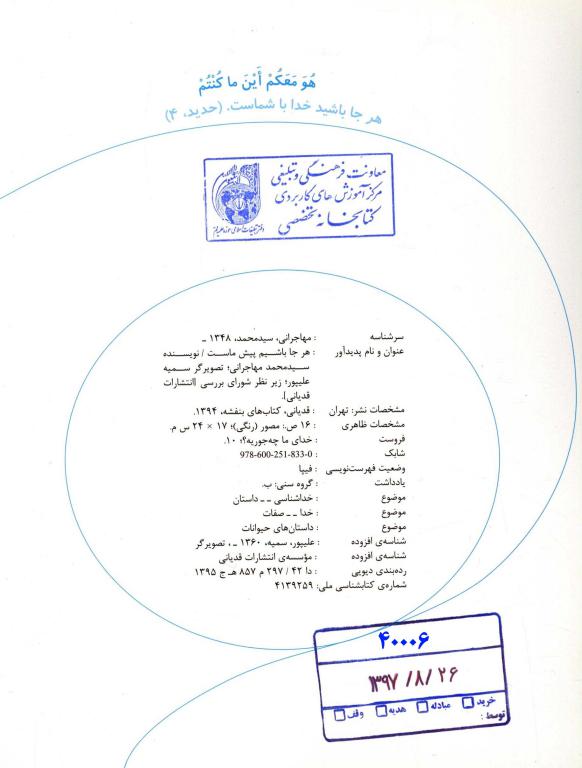 هُوَ مَعَكُمْ أَيْنَ ما كُنْتُمْ
هر جا باشید خدا با شماست. (حدید، ۴)
معاونت فرهنگی و تبلیغی
مرکز آموزش های کاربردی
کتابخانه تخصصی
دفتر تبلیغات اسلامی حوزه علمیه قم
سرشناسه : مهاجرانی، سیدمحمد، ۱۳۴۸ ـ
عنوان و نام پدیدآور : هر جا باشیم پیش ماست / نویسنده
سیدمحمد مهاجرانی؛ تصویرگر سمیه
علیپور؛ زیر نظر شورای بررسی [انتشارات
قدیانی].
مشخصات نشر: تهران : قدیانی، کتاب‌های بنفشه، ۱۳۹۴.
مشخصات ظاهری : ۱۶ ص.: مصور (رنگی)؛ ۱۷ × ۲۴ س م.
فروست : خدای ما چه‌جوریه؟؛ ۱۰.
شابک : 978-600-251-833-0
وضعیت فهرست‌نویسی : فیپا
یادداشت : گروه سنی: ب.
موضوع : خداشناسی ـ ـ داستان
موضوع : خدا ـ ـ صفات
موضوع : داستان‌های حیوانات
شناسه‌ی افزوده : علیپور، سمیه، ۱۳۶۰ ـ ، تصویرگر
شناسه‌ی افزوده : مؤسسه‌ی انتشارات قدیانی
رده‌بندی دیویی : دا ۴۲ / ۲۹۷ م ۸۵۷ هـ ج ۱۳۹۵
شماره‌ی کتابشناسی ملی: ۴۱۳۹۲۵۹
۴۰۰۰۶
۱۳۹۷/۸/۲۶
خرید مبادله هدیه وقف
توسط :